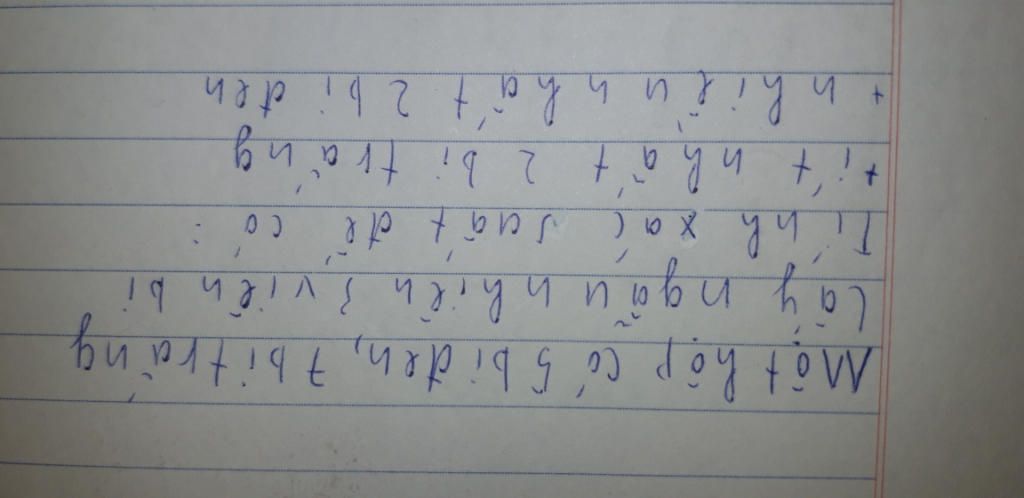 Một hộp có 5 bi đen, 7 bi trắng
Lấy ngẫu nhiên 3 viên bi
Tính xác suất để có :
+ ít nhất 2 bi trắng
+ nhiều nhất 2 bi đen